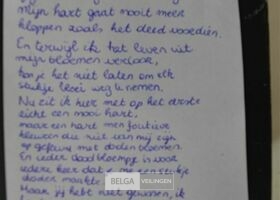 mijn hart gaat nooit meer
kloppen zoals het deed voordien.
En terwijl ik het leven uit
mijn bloemen verloor,
kon je het niet laten om elk
stukje weg te nemen.
Nu zit ik hier met op het
zicht een mooi hart,
maar een hart met foutieve
kleuren die niet van mij zijn
op gefleurd met doden bloemen.
En ieder dood bloempje is voor
iedere keer dat je me een stukje
maakte
Maar jij hebt niet gewonnen, ik
BELGA VEILINGEN